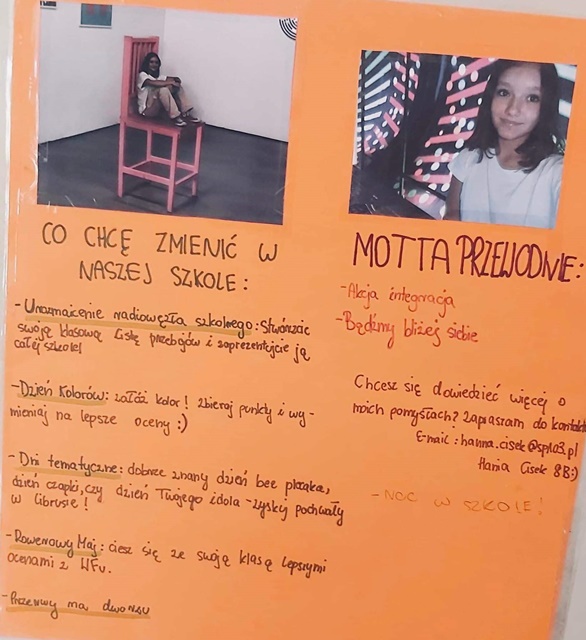 CO CHCĘ ZMIENIĆ W
NASZEJ SZKOLE:
- Urozmaicenie radiowęzła szkolnego: Stwórzcie
swoją klasową listę przebojów i zaprezentujcie ją
całej szkole!
- Dzień Kolorów: załóż kolor! Zbieraj punkty i wy-
mieniaj na lepsze oceny :)
- Dni tematyczne: dobrze znany dzień bez plecaka,
dzień czapki, czy dzień Twojego idola - zyskuj pochwały
w Librusie!
- Rowerowy Maj: ciesz się ze swoją klasą lepszymi
ocenami z WFu.
- Przerwy na dworzu
MOTTA PRZEWODNIE:
- Akcja integracja
- Bądźmy bliżej siebie
Chcesz się dowiedzieć więcej o
moich pomysłach? Zapraszam do kontaktu
E-mail: hanna.cisek@splo3.pl
Hania Cisek 8B:)
- NOC W SZKOLE!